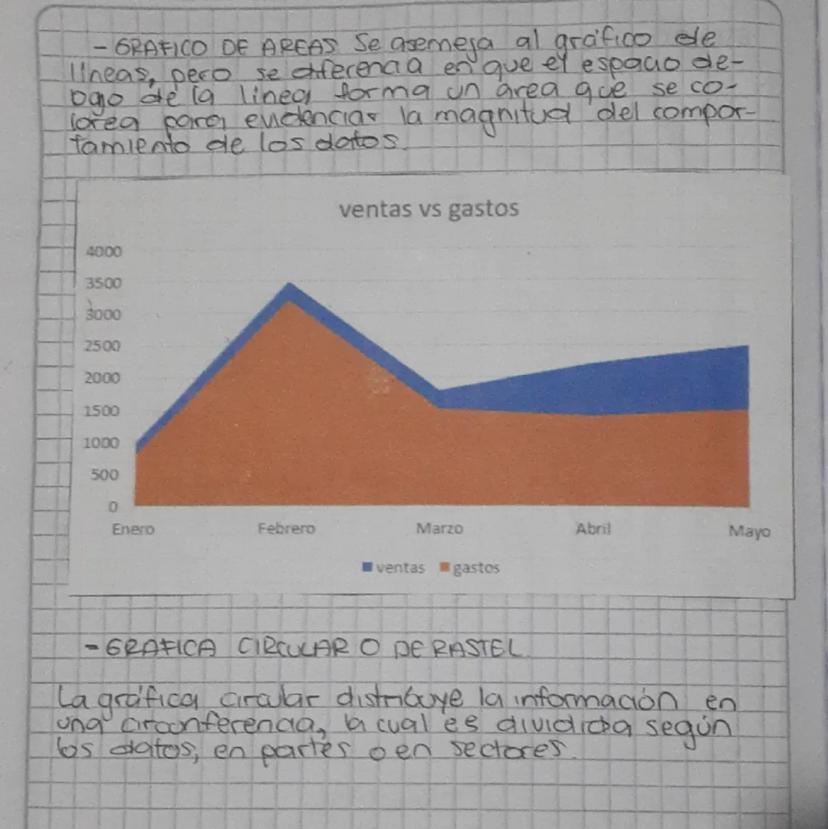 - GRAFICO DE AREAS Se asemeja al gráfico de
líneas, pero se diferencia en que el espacio de-
bajo de la linea forma un area que se co-
lorea para evidenciar la magnitud del compor-
tamiento de los datos.
ventas vs gastos
4000
3500
3000
2500
2000
1500
1000
500
0
Enero Febrero Marzo Abril Mayo
ventas gastos
- GRAFICA CIRCULAR O DE PASTEL
La gráfica circular distribuye la información en
una circunferencia, la cual es dividida según
los datos, en partes o en sectores.